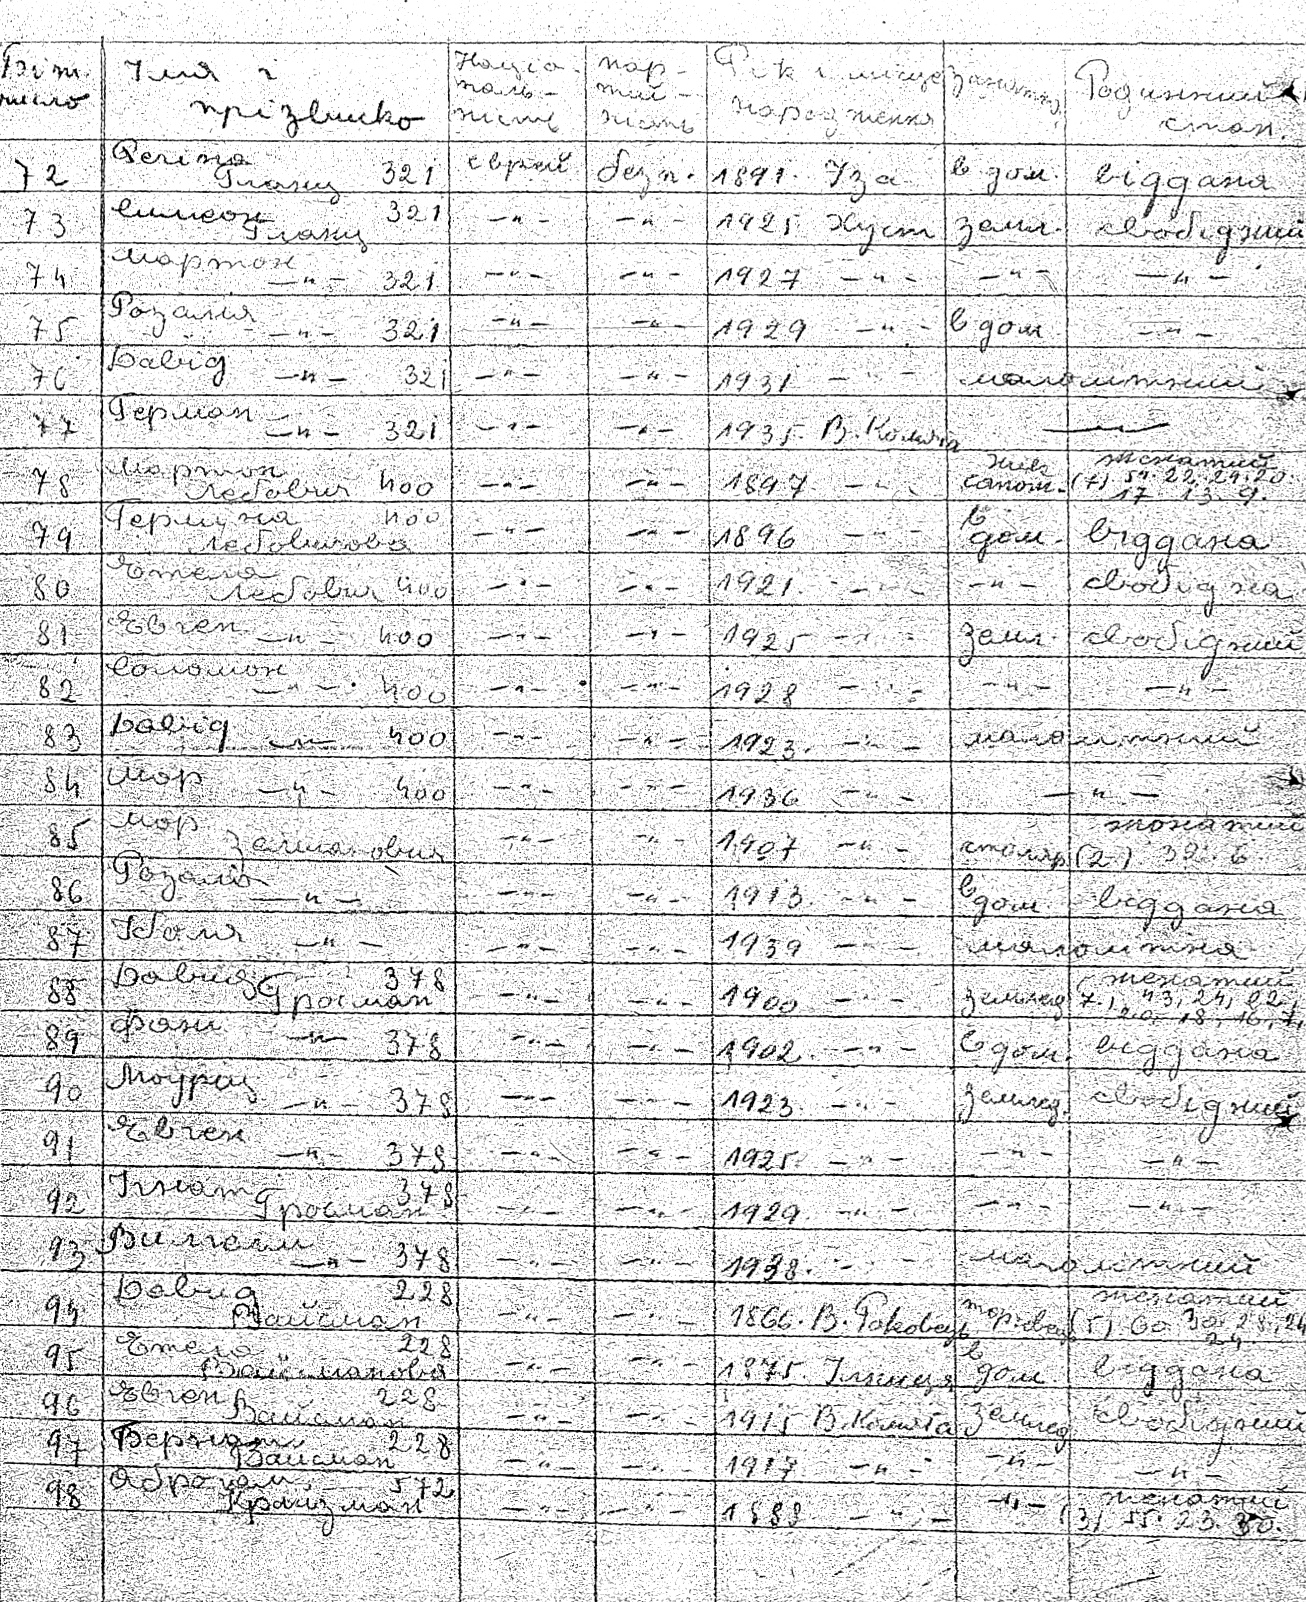 Біт. число Імя і прізвище Націо- наль- ність пар- тій- ність Рік і місце народження Родинний стан.
72 Регіна Гланц 321 єврей безп. 1891. Іза в дом. віддана
73 Симеон Гланц 321 -"- -"- 1925. Хуст земл. свобідний
74 Мартон -"- 321 -"- -"- 1927 -"- -"- -"-
75 Розалія -"- 321 -"- -"- 1929 -"- в дом. -"-
76 Давід -"- 321 -"- -"- 1931 -"- малолітний
77 Герман -"- 321 -"- -"- 1935. В. Копаня
78 Мартон Лебович 400 -"- -"- 1897. -"- женатий (7) 54. 22. 24. 20. 17. 13. 9.
79 Герміна Лебовичова 400 -"- -"- 1896 -"- в дом. віддана
80 Етеля Лебович 400 -"- -"- 1921. -"- -"- свобідна
81 Євген -"- 400 -"- -"- 1925 -"- земл. свобідний
82 Соломон -"- 400 -"- -"- 1928 -"- -"- -"-
83 Давід -"- 400 -"- -"- 1923. -"- малолітний
84 Мор -"- 400 -"- -"- 1936 -"- -"-
85 Мор Залманович -"- -"- 1907 -"- столяр женатий (2) 32. 6.
86 Розалія -"- -"- -"- 1913. -"- в дом. віддана
87 Іболя -"- -"- -"- 1939 -"- малолітна
88 Давид Гросман 378 -"- -"- 1900 -"- землед женатий 7), 43, 24, 22, 20, 18, 16, 7,
89 Фані -"- 378 -"- -"- 1902. -"- в дом. віддана
90 Моурац -"- 378 -"- -"- 1923. -"- землед. свобідний
91 Євген -"- 378 -"- -"- 1925. -"- -"- -"-
92 Ігнат Гросман 378 -"- -"- 1929. -"- -"- -"-
93 Вилгелм -"- 378 -"- -"- 1938. -"- малолітний
94 Давид Вайсман 228 -"- -"- 1866. В. Раковець торговець женатий (5) 60, 30, 28, 24 24
95 Етела Вайсманова 228 -"- -"- 1875. Ільниця в дом. віддана
96 Євген Вайсман 228 -"- -"- 1915 В. Копаня землед свобідний
97 Бернат Вайсман 228 -"- -"- 1917 -"- -"- -"-
98 Аброгам Крайзман 572 -"- -"- 1888. -"- -"- женатий (3) 55. 23. 30.